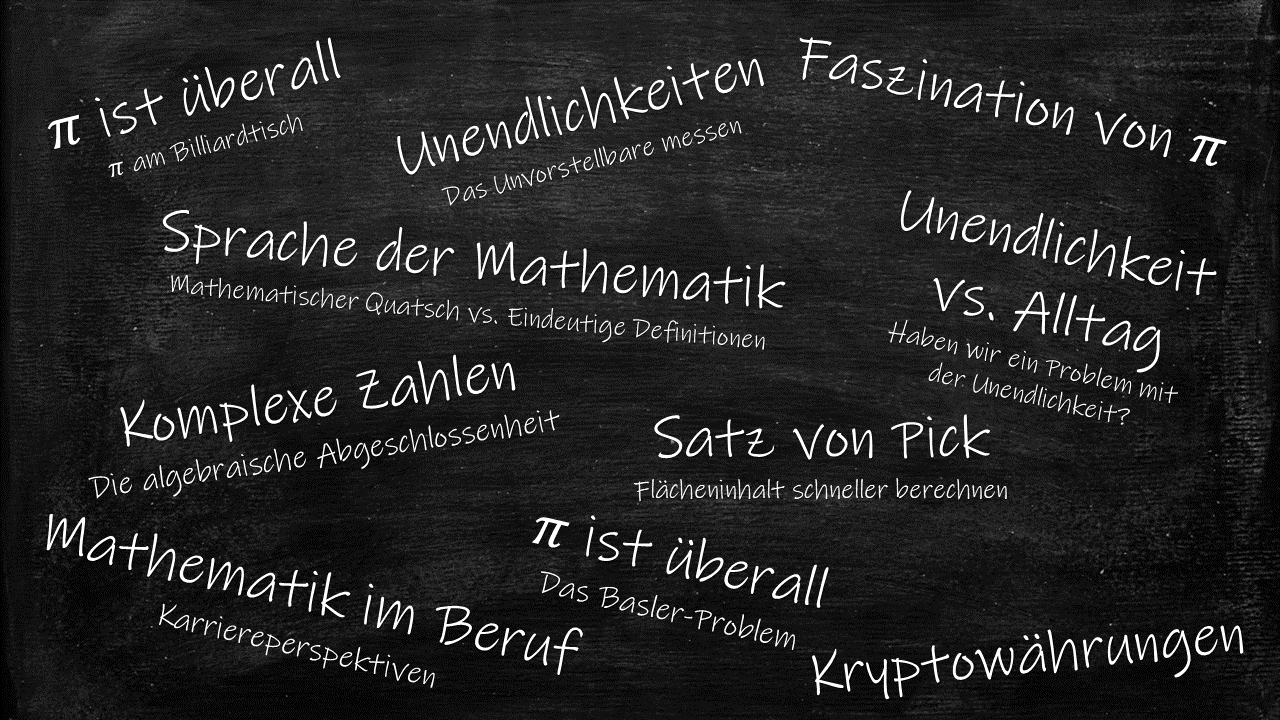 π ist überall
π am Billiardtisch
Unendlichkeiten
Das Unvorstellbare messen
Faszination von π
Sprache der Mathematik
Mathematischer Quatsch vs. Eindeutige Definitionen
Unendlichkeit
vs. Alltag
Haben wir ein Problem mit
der Unendlichkeit?
Komplexe Zahlen
Die algebraische Abgeschlossenheit
Satz von Pick
Flächeninhalt schneller berechnen
Mathematik im Beruf
Karriereperspektiven
π ist überall
Das Basler-Problem
Kryptowährungen